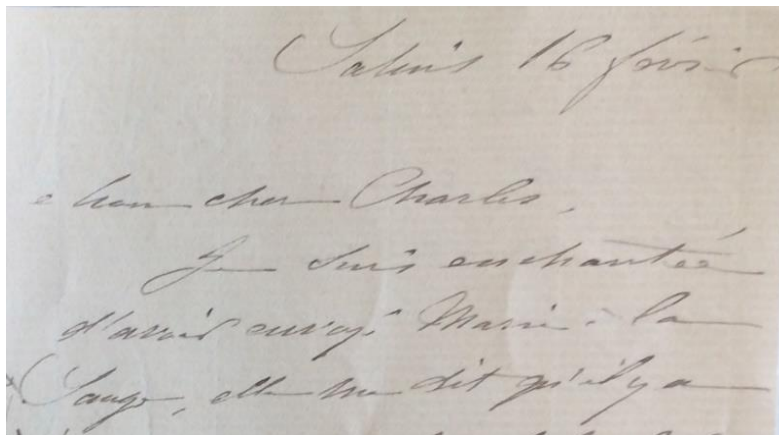 Salins 16 févrie
Mon cher Charles,
Je suis enchantée
d'avoir envoyé Marie à la
Sauge, elle me dit qu'il y a